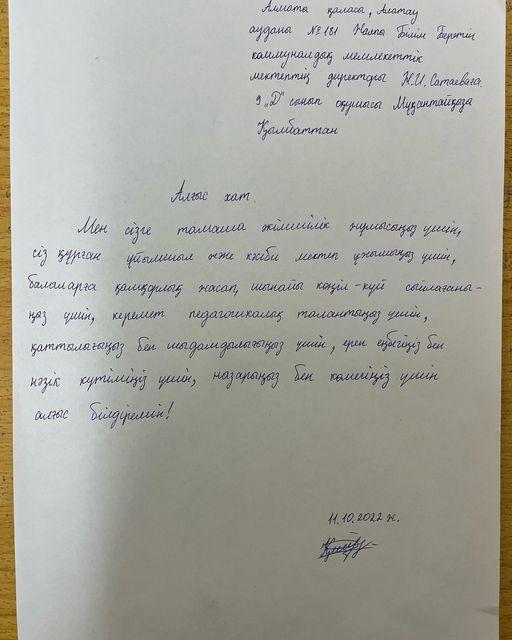 Алматы қаласы, Алатау
ауданы №181 Жалпы Білім Беретін
коммуналдық мемлекеттік
мектептің директоры Н.И.Сатаеваға
9 „Д" сынып оқушысы Мұқантайқыза
Қымбаттан
Алғыс хат.
Мен сізге тамаша жімшілік жұмысыңыз үшін,
сіз құрған ұйымшыл және кәсіби мектеп ұжымыңыз үшін,
балаларға қамқорлық жасап, шынайы көңіл-күй сыйлағаны-
ңыз үшін, керемет педагогикалық талантыңыз үшін,
қаттылығыңыз бен шыдамдылығыңыз үшін, ерен еңбегіңіз бен
нәзік күтіміңіз үшін, назарыңыз бен көмегіңіз үшін
алғыс білдіремін!
11.10.2022 ж.